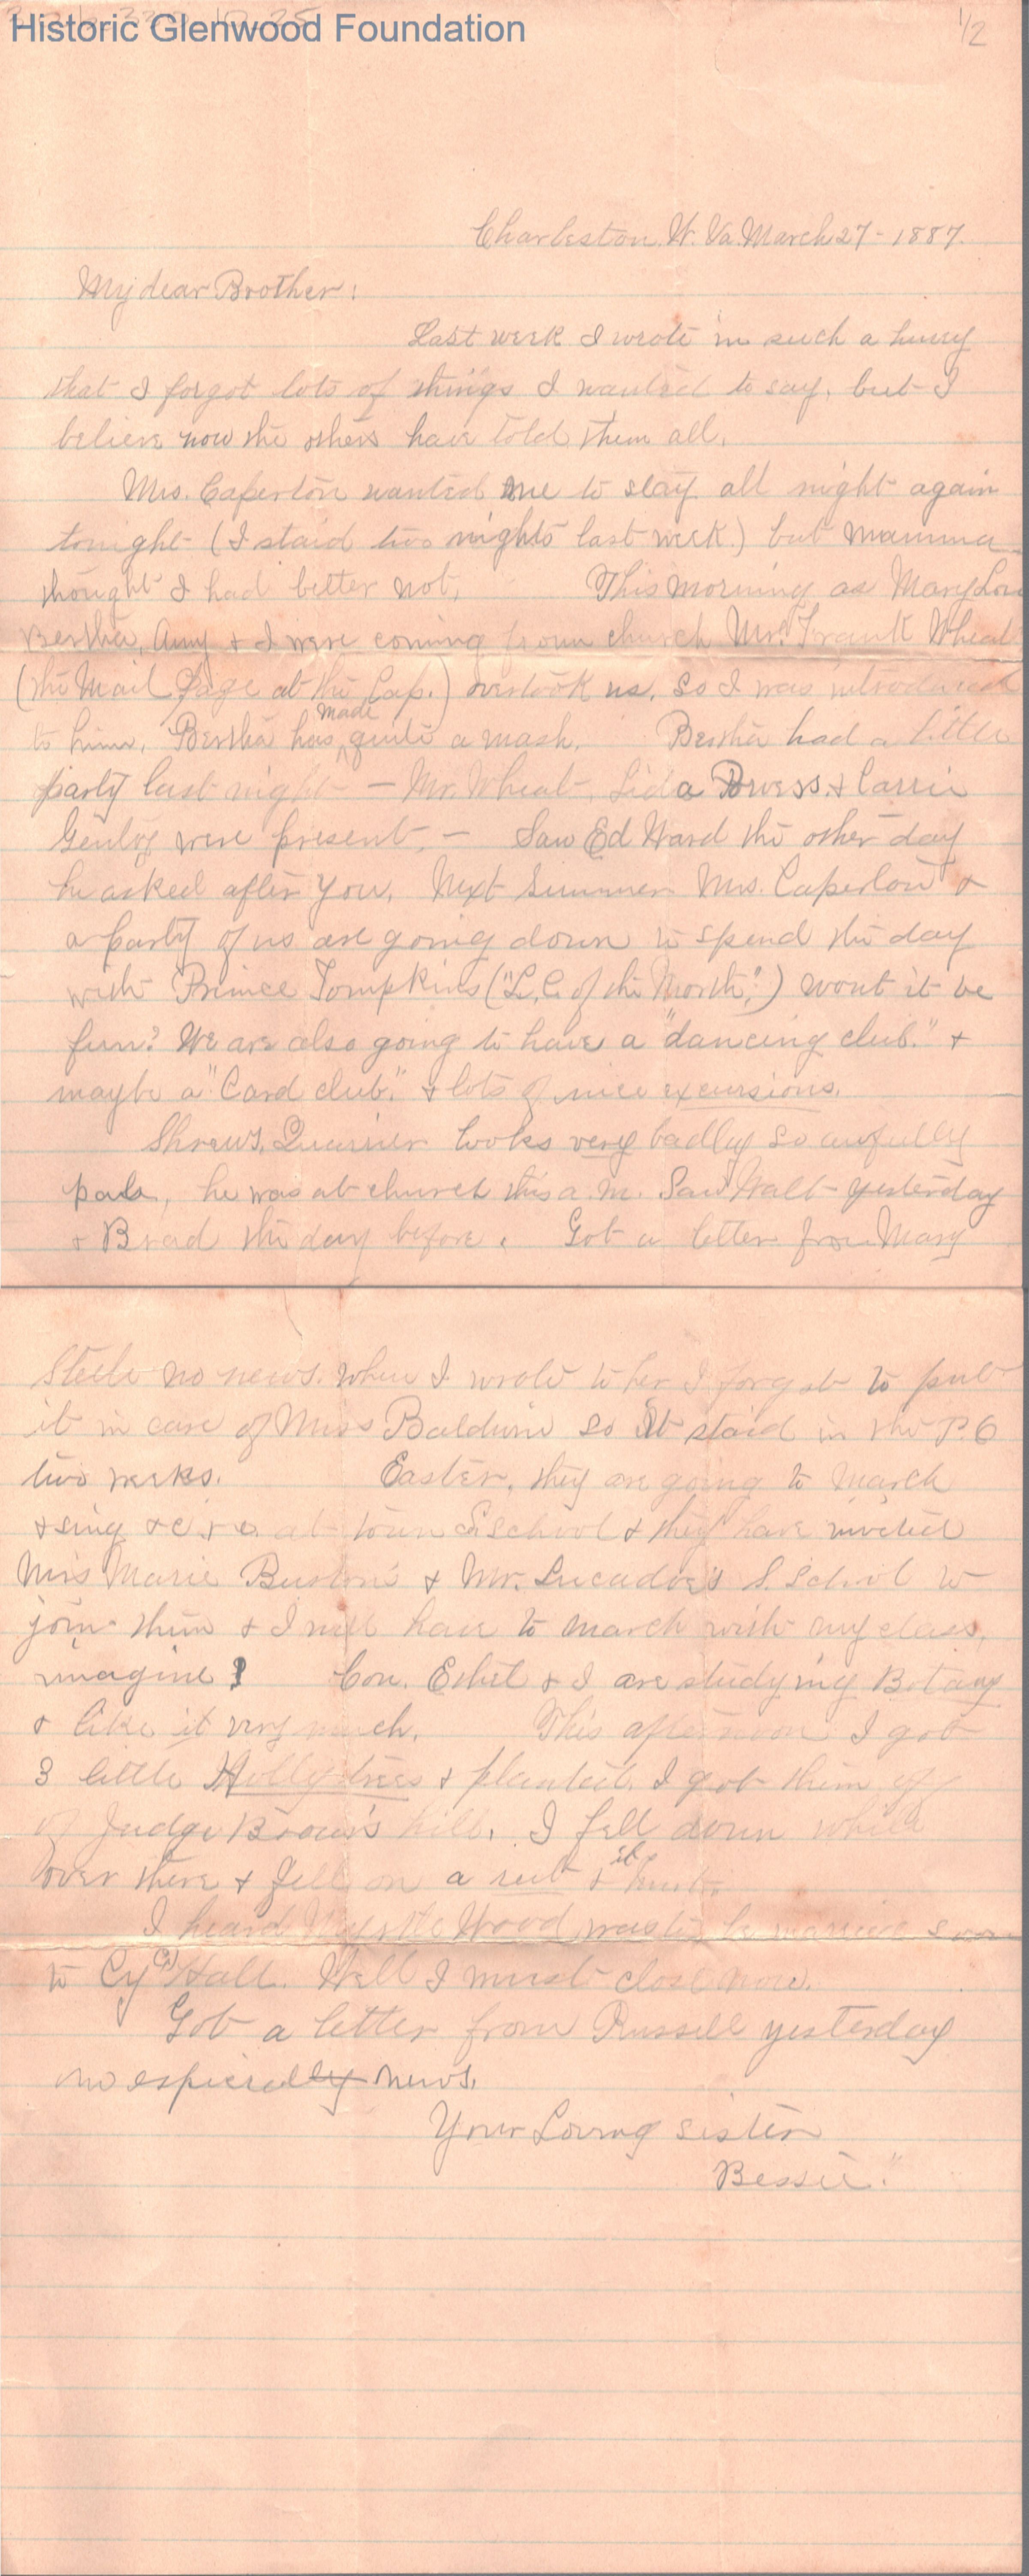 Historic Glenwood Foundation
1/2
Charleston. W. Va. March 27 - 1887.
My dear Brother:
Last week I wrote in such a hurry
that I forgot lots of things I wanted to say, but I
believe now the others have told them all.
Mrs. Caperton wanted me to stay all night again
tonight (I staid two nights last week.) but Mamma
thought I had better not. This morning as Mary Lou
Bertha, Amy & I were coming from church Mr. Frank Wheat
(the Mail Page at the Cap.) overtook us, so I was introduced
to him, Bertha has made quite a mash. Bertha had a little
party last night - Mr. Wheat, Lida & Carrie
were present. - Saw Ed Ward the other day
he asked after you. Next Summer Mrs. Caperton &
a party of us are going down to spend the day
with Prince Tompkins ("L.C. of the North",) wont it be
fun? We are also going to have a "dancing club." &
maybe a "Card club," & lots of nice excursions.
Shrews. Quarrier looks very badly so awfully
pale, he was at church this a.m. Saw Walt yesterday
& Brad the day before. Got a letter from Mary
Steele no news. When I wrote to her I forgot to put
it in care of Miss Baldwin so it staid in the P.O
two weeks. Easter, they are going to march
& sing &c &c. at town S School & they have invited
Miss Marie & Mr. S. School to
join them & I will have to march with my class,
imagine! Con. Ethel & I are studying Botany
& like it very much. This afternoon I got
3 little Holly trees & planted. I got them off
of Judge Brown's hill. I fell down while
over there & fell on a & it hurt.
I heard Myrtle Wood was to be married soon
to Cy Hall. Well I must close now.
Got a letter from Russell yesterday
no especially news.
Your Loving sister
Bessie."